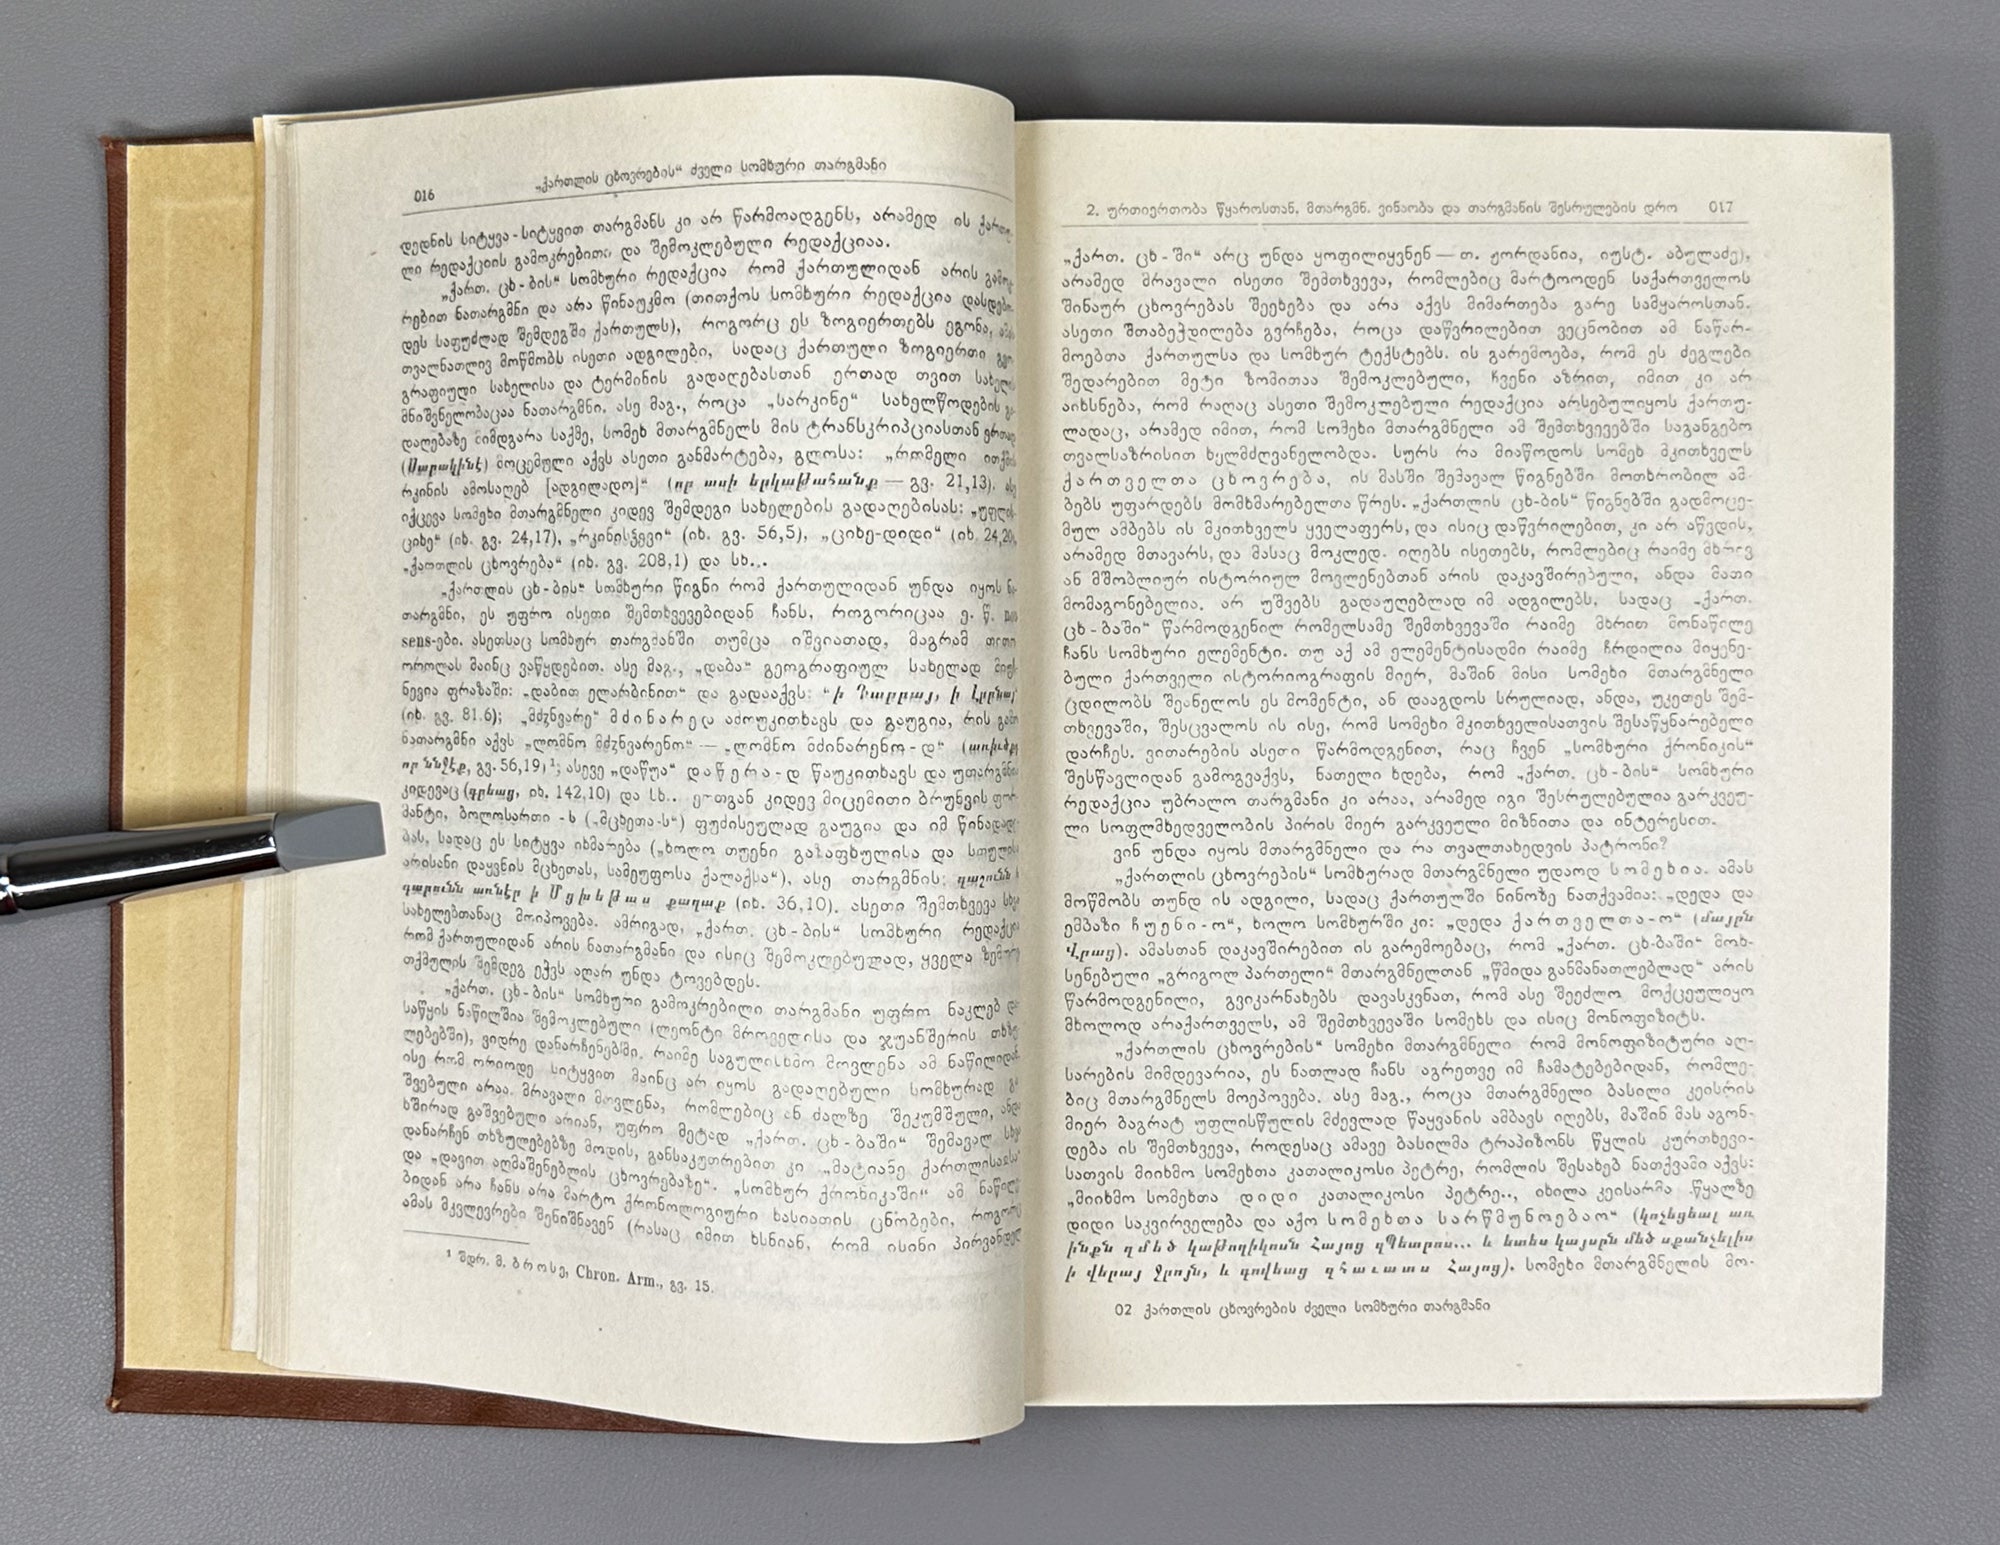 016
„ქართლის ცხოვრების“ ძველი სომხური თარგმანი
დედნის სიტყვა-სიტყვით თარგმანს კი არ წარმოადგენს, არამედ ის
ლი რედაქციის გამოკრებითი და შემოკლებული რედაქციაა.
„ქართ. ცხ-ბის“ სომხური რედაქცია რომ ქართულიდან არის
რებით ნათარგმნი და არა წინაუკმო (თითქოს სომხური რედაქცია
დეს საფუძლად შემდეგში ქართულს), როგორც ეს ზოგიერთებს ეგონა,
თვალნათლივ მოწმობს ისეთი ადგილები, სადაც ქართული ზოგიერთი
გრაფიული სახელისა და ტერმინის გადაღებასთან ერთად თვით
მნიშვნელობაცაა ნათარგმნი. ასე მაგ., როცა „სარკინე“ სახელწოდების
დაღებაზე მიმდგარა საქმე, სომეხ მთარგმნელს მის ტრანსკრიპციასთან ერთად
(Սարակինէ) მოცემული აქვს ასეთი განმარტება, გლოსა: „რომელი
რკინის ამოსაღებ [ადგილადო]“ (որ ասի երկաթահանք — გვ. 21,13).
იქცევა სომეხი მთარგმნელი კიდევ შემდეგი სახელების გადაღებისას:
ციხე“ (იხ. გვ. 24,17), „რკინისჴევი“ (იხ. გვ. 56,5), „ციხე-დიდი“ (იხ. 24,20),
„ქართლის ცხოვრება“ (იხ. გვ. 208,1) და სხ...
„ქართლის ცხ-ბის“ სომხური წიგნი რომ ქართულიდან უნდა იყოს
თარგმნი, ეს უფრო ისეთი შემთხვევებიდან ჩანს, როგორიცაა ე. წ.
sens-ები. ასეთსაც სომხურ თარგმანში თუმცა იშვიათად, მაგრამ
ოროლას მაინც ვაწყდებით. ასე მაგ., „დაბა“ გეოგრაფიულ სახელად
ნევია ფრაზაში: „დაბით ელარბინით“ და გადააქვს:
(იხ. გვ. 81.6); „მძჳნვარე“ მძინარედ ამოუკითხავს და გაუგია, რის
ნათარგმნი აქვს „ლომნო მძჳნვარენო“ — „ლომნო მძინარენო-დ“ (առիւծք
որ ննջէք, გვ. 56,19)¹; ასევე „დაწუა“ დაწერა-დ წაუკითხავს და უთარგმნია
კიდევაც (գրեաց, იხ. 142,10) და სხ.. ერთგან კიდევ მიცემითი ბრუნვის
მანტი, ბოლოსართი -ს („მცხეთა-ს“) ფუძისეულად გაუგია და იმ
სადაც ეს სიტყვა იხმარება („ხოლო თუენი გაზაფხულისა და
არისანი დაყვნის მცხეთას, სამეუფოსა ქალაქსა“), ასე თარგმნის:
գարունն առնէր ի Մցխեթաս քաղաք (იხ. 36,10). ასეთი შემთხვევა
სახელებთანაც მოიპოვება. ამრიგად, „ქართ. ცხ-ბის“ სომხური
რომ ქართულიდან არის ნათარგმანი და ისიც შემოკლებულად, ყველა
თქმულის შემდეგ ეჭვს აღარ უნდა ტოვებდეს.
„ქართ. ცხ-ბის“ სომხური გამოკრებილი თარგმანი უფრო ნაკლებ
საწყის ნაწილშია შემოკლებული (ლეონტი მროველისა და ჯუანშერის
ლებებში), ვიდრე დანარჩენებში. რაიმე საგულისხმო მოვლენა ამ ნაწილიდან
ისე რომ ორიოდე სიტყვით მაინც არ იყოს გადაღებული სომხურად
შვებული არაა. მრავალი მოვლენა, რომლებიც ან ძალზე შეკუმშული,
ხშირად გაშვებული არიან, უფრო მეტად „ქართ. ცხ-ბაში“ შემავალ
დანარჩენ თხზულებებზე მოდის, განსაკუთრებით კი „მატიანე ქართლისაჲსა“
და „დავით აღმაშენებლის ცხოვრებაზე“. „სომხურ ქრონიკაში“ ამ
ბიდან არა ჩანს არა მარტო ქრონოლოგიური ხასიათის ცნობები,
ამას მკვლევრები შენიშნავენ (რასაც იმით ხსნიან, რომ ისინი
¹ შდრ. მ. ბროსე, Chron. Arm., გვ. 15.
2. ურთიერთობა წყაროსთან. მთარგმნ. ვინაობა და თარგმანის შესრულების დრო 017
„ქართ. ცხ-ში“ არც უნდა ყოფილიყვნენ — თ. ჟორდანია, იუსტ. აბულაძე),
არამედ მრავალი ისეთი შემთხვევა, რომლებიც მარტოოდენ საქართველოს
შინაურ ცხოვრებას შეეხება და არა აქვს მიმართება გარე სამყაროსთან.
ასეთი შთაბეჭდილება გვრჩება, როცა დაწვრილებით ვეცნობით ამ ნაწარ-
მოებთა ქართულსა და სომხურ ტექსტებს. ის გარემოება, რომ ეს ძეგლები
შედარებით მეტი ზომითაა შემოკლებული, ჩვენი აზრით, იმით კი არ
აიხსნება, რომ რაღაც ასეთი შემოკლებული რედაქცია არსებულიყოს ქართუ-
ლადაც, არამედ იმით, რომ სომეხი მთარგმნელი ამ შემთხვევებში საგანგებო
თვალსაზრისით ხელმძღვანელობდა. სურს რა მიაწოდოს სომეხ მკითხველს
ქართველთა ცხოვრება, ის მასში შემავალ წიგნებში მოთხრობილ ამ-
ბებს უფარდებს მომხმარებელთა წრეს. „ქართლის ცხ-ბის“ წიგნებში გადმოცე-
მულ ამბებს ის მკითხველს ყველაფერს, და ისიც დაწვრილებით, კი არ აწვდის,
არამედ მთავარს, და მასაც მოკლედ. იღებს ისეთებს, რომლებიც რაიმე მხრივ
ან მშობლიურ ისტორიულ მოვლენებთან არის დაკავშირებული, ანდა მათი
მომაგონებელია. არ უშვებს გადაუღებლად იმ ადგილებს, სადაც „ქართ.
ცხ-ბაში“ წარმოდგენილ რომელსამე შემთხვევაში რაიმე მხრით მონაწილე
ჩანს სომხური ელემენტი. თუ აქ ამ ელემენტისადმი რაიმე ჩრდილია მიყენე-
ბული ქართველი ისტორიოგრაფის მიერ, მაშინ მისი სომეხი მთარგმნელი
ცდილობს შეანელოს ეს მომენტი, ან დააგდოს სრულიად, ანდა, უკეთეს შემ-
თხვევაში, შესცვალოს ის ისე, რომ სომეხი მკითხველისათვის შესაწყნარებელი
დარჩეს. ვითარების ასეთი წარმოდგენით, რაც ჩვენ „სომხური ქრონიკის“
შესწავლიდან გამოგვაქვს, ნათელი ხდება, რომ „ქართ. ცხ-ბის“ სომხური
რედაქცია უბრალო თარგმანი კი არაა, არამედ იგი შესრულებულია გარკვეუ-
ლი სოფლმხედველობის პირის მიერ გარკვეული მიზნითა და ინტერესით.
ვინ უნდა იყოს მთარგმნელი და რა თვალთახედვის პატრონი?
„ქართლის ცხოვრების“ სომხურად მთარგმნელი უდაოდ სომეხია. ამას
მოწმობს თუნდ ის ადგილი, სადაც ქართულში ნინოზე ნათქვამია: „დედა და
ემბაზი ჩუენი-ო“, ხოლო სომხურში კი: „დედა ქართველთა-ო“ (մայրն
Վրաց). ამასთან დაკავშირებით ის გარემოებაც, რომ „ქართ. ცხ-ბაში“ მოხ-
სენებული „გრიგოლ პართელი“ მთარგმნელთან „წმიდა განმანათლებლად“ არის
წარმოდგენილი, გვიკარნახებს დავასკვნათ, რომ ასე შეეძლო მოქცეულიყო
მხოლოდ არაქართველს, ამ შემთხვევაში სომეხს და ისიც მონოფიზიტს.
„ქართლის ცხოვრების“ სომეხი მთარგმნელი რომ მონოფიზიტური აღ-
სარების მიმდევარია, ეს ნათლად ჩანს აგრეთვე იმ ჩამატებებიდან, რომლე-
ბიც მთარგმნელს მოეპოვება. ასე მაგ., როცა მთარგმნელი ბასილი კეისრის
მიერ ბაგრატ უფლისწულის მძევლად წაყვანის ამბავს იღებს, მაშინ მას აგონ-
დება ის შემთხვევა, როდესაც ამავე ბასილმა ტრაპიზონს წყლის კურთხევი-
სათვის მიიხმო სომეხთა კათალიკოსი პეტრე, რომლის შესახებ ნათქვამი აქვს:
„მიიხმო სომეხთა დიდი კათალიკოსი პეტრე.., იხილა კეისარმა წყალზე
დიდი საკვირველება და აქო სომეხთა სარწმუნოებაო“ (կոչեցեալ առ
ինքն զմեծ կաթողիկոսն Հայոց զՊետրոս... և ետես կայսրն մեծ սքանչելիս
ի վերայ ջրոյն, և գովեաց զհաւատս Հայոց). სომეხი მთარგმნელის მო-
02 ქართლის ცხოვრების ძველი სომხური თარგმანი